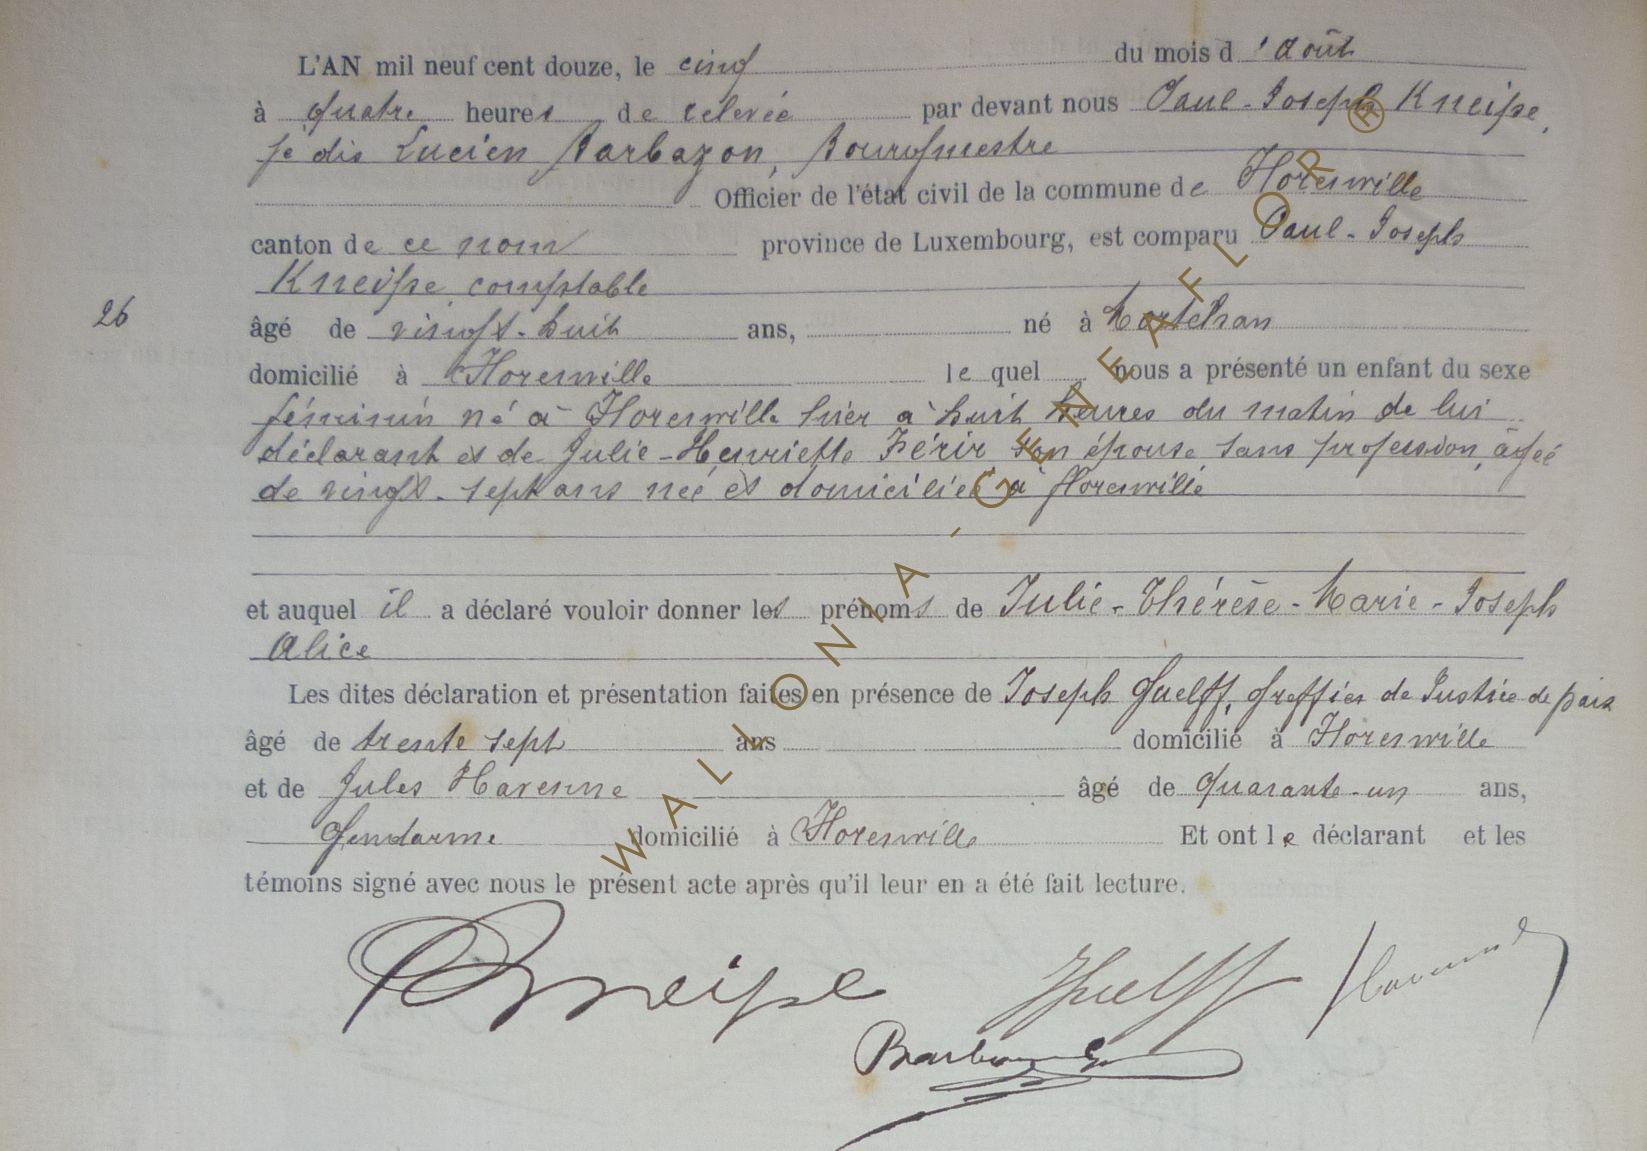 L'AN mil neuf cent douze, le cinq du mois d'août
à quatre heures de relevée par devant nous Paul-Joseph Kneipe,
je dis Lucien Barbazon, Bourgmestre
Officier de l'état civil de la commune de Florenville
canton de ce nom province de Luxembourg, est comparu Paul-Joseph
Kneipe, comptable
26
âgé de vingt-huit ans, né à Mortehan
domicilié à Florenville lequel nous a présenté un enfant du sexe
féminin né à Florenville hier à huit heures du matin de lui
déclarant et de Julie-Henriette Férir son épouse sans profession, âgée
de vingt-sept ans née et domiciliée à Florenville
et auquel il a déclaré vouloir donner les prénoms de Julie-Thérèse-Marie-Joseph
Alice
Les dites déclaration et présentation faites en présence de Joseph Guelff, Greffier de Justice de paix
âgé de trente sept ans domicilié à Florenville
et de Jules Havenne âgé de quarante-un ans,
Gendarme domicilié à Florenville Et ont le déclarant et les
témoins signé avec nous le présent acte après qu'il leur en a été fait lecture.
Kneipe JGuelff Havenne
Barbazon
WALLONIA-GENEAFLOR®